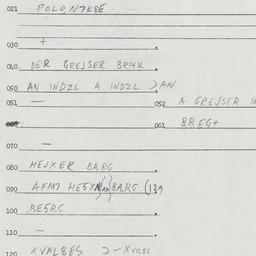 021 POLO,N7K8E
030 +
040 DER GREJSER BRI4K
050 AN INDZL A INDZL ) AN
051 —
052 A GREJSER IN
061 BREG+
070 —
080 HEJXER BARG
090 AFM7 HE5XN BARG (129
100 BE5RG
110 —
120 XVAL8ES